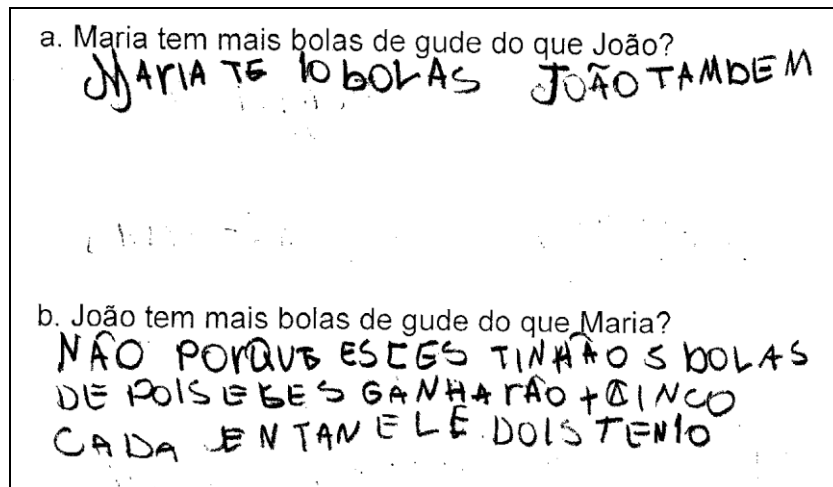 a. Maria tem mais bolas de gude do que João?
MARIA TE 10 BOLAS JOÃO TAMDEM
b. João tem mais bolas de gude do que Maria?
NÃO PORQUE ESCES TINHÃO 5 BOLAS
DE POIS ELES GANHARÃO + CINCO
CADA EN TAN ELE DOIS TEN 10